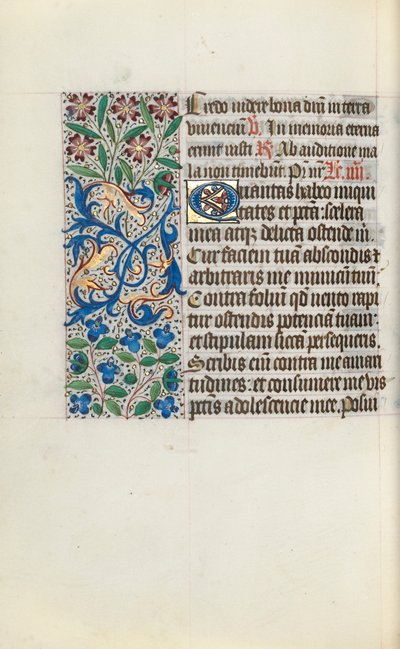 Credo videre bona dnī in terra
viventiū. V. In memoria eterna
erunt iusti R. Ab auditione ma
la non timebūt. Pr̄ nr̄ Le. iiii.
Quantas habeo iniqui
tates et pctā: scelera
mea atqz delicta ostende m̄.
Cur faciem tuā abscondis et
arbitraris me inimicum tuū.
Contra foliū qd̄ vento rapi
tur ostendis potenciā tuam:
et stipulam siccā persequeris.
Scribis eni contra me amari
tudines: et consumere me vis
pctīs adolescencie mee. Posui